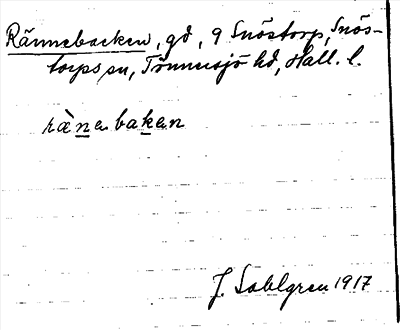 Rännebacken, gd, 9 Snöstorp, Snös-
torps sn, Tönnersjö hd, Hall. l.
rǣ̀nabakan
J. Sahlgren 1917